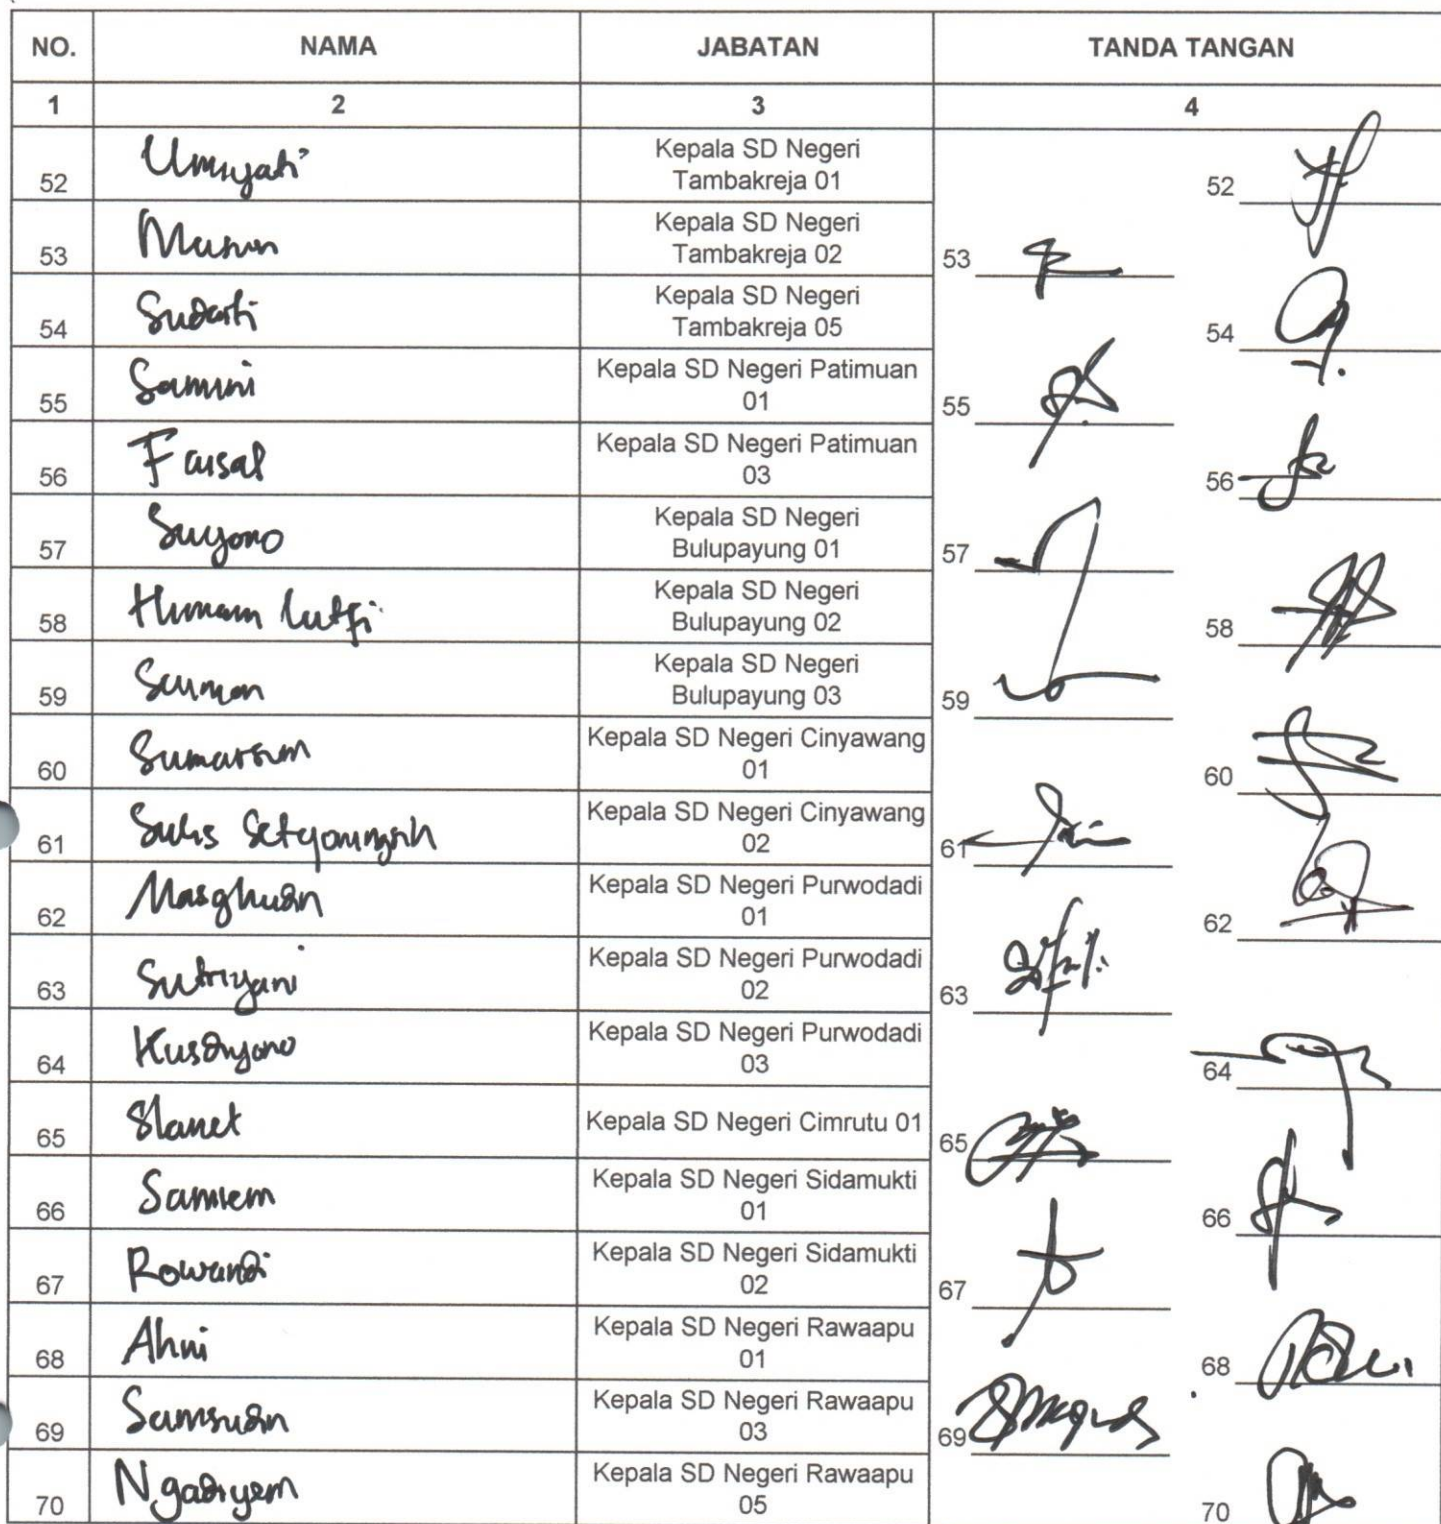 NO. NAMA JABATAN TANDA TANGAN
1 2 3 4
52 Umiyati Kepala SD Negeri Tambakreja 01 52
53 Kepala SD Negeri Tambakreja 02 53
54 Sudarti Kepala SD Negeri Tambakreja 05 54
55 Samini Kepala SD Negeri Patimuan 01 55
56 Faisal Kepala SD Negeri Patimuan 03 56
57 Suyono Kepala SD Negeri Bulupayung 01 57
58 Humam Lutfi Kepala SD Negeri Bulupayung 02 58
59 Kepala SD Negeri Bulupayung 03 59
60 Sumarsum Kepala SD Negeri Cinyawang 01 60
61 Sulis Setyoningsih Kepala SD Negeri Cinyawang 02 61
62 Kepala SD Negeri Purwodadi 01 62
63 Sutriyani Kepala SD Negeri Purwodadi 02 63
64 Kusdiyono Kepala SD Negeri Purwodadi 03 64
65 Slamet Kepala SD Negeri Cimrutu 01 65
66 Samiem Kepala SD Negeri Sidamukti 01 66
67 Rowandi Kepala SD Negeri Sidamukti 02 67
68 Ahni Kepala SD Negeri Rawaapu 01 68
69 Samsudin Kepala SD Negeri Rawaapu 03 69
70 Ngadiyem Kepala SD Negeri Rawaapu 05 70